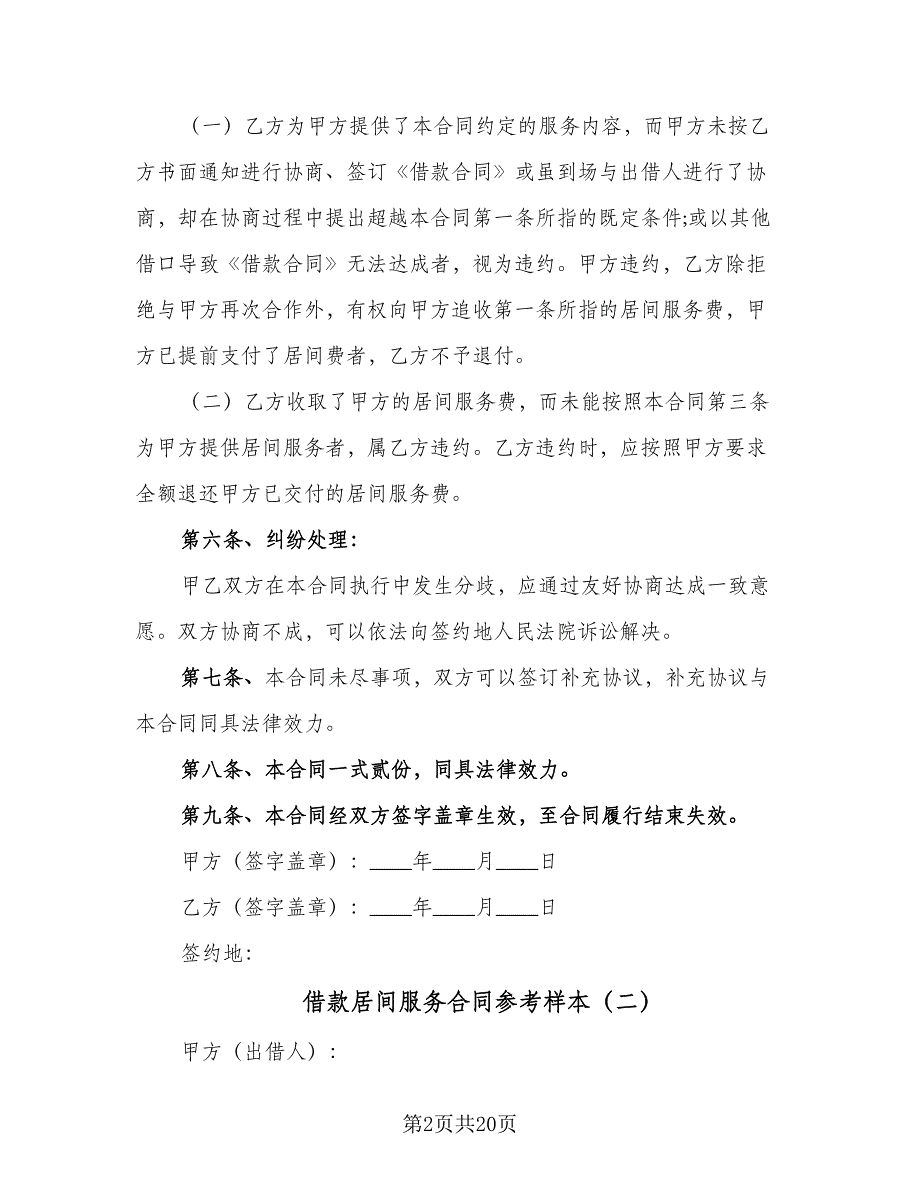 （一）乙方为甲方提供了本合同约定的服务内容，而甲方未按乙
方书面通知进行协商、签订《借款合同》或虽到场与出借人进行了协
商，却在协商过程中提出超越本合同第一条所指的既定条件;或以其他
借口导致《借款合同》无法达成者，视为违约。甲方违约，乙方除拒
绝与甲方再次合作外，有权向甲方追收第一条所指的居间服务费，甲
方已提前支付了居间费者，乙方不予退付。
（二）乙方收取了甲方的居间服务费，而未能按照本合同第三条
为甲方提供居间服务者，属乙方违约。乙方违约时，应按照甲方要求
全额退还甲方已交付的居间服务费。
第六条、纠纷处理：
甲乙双方在本合同执行中发生分歧，应通过友好协商达成一致意
愿。双方协商不成，可以依法向签约地人民法院诉讼解决。
第七条、本合同未尽事项，双方可以签订补充协议，补充协议与
本合同同具法律效力。
第八条、本合同一式贰份，同具法律效力。
第九条、本合同经双方签字盖章生效，至合同履行结束失效。
甲方（签字盖章）：____年____月____日
乙方（签字盖章）：____年____月____日
签约地：
借款居间服务合同参考样本（二）
甲方（出借人）：
第2页共20页